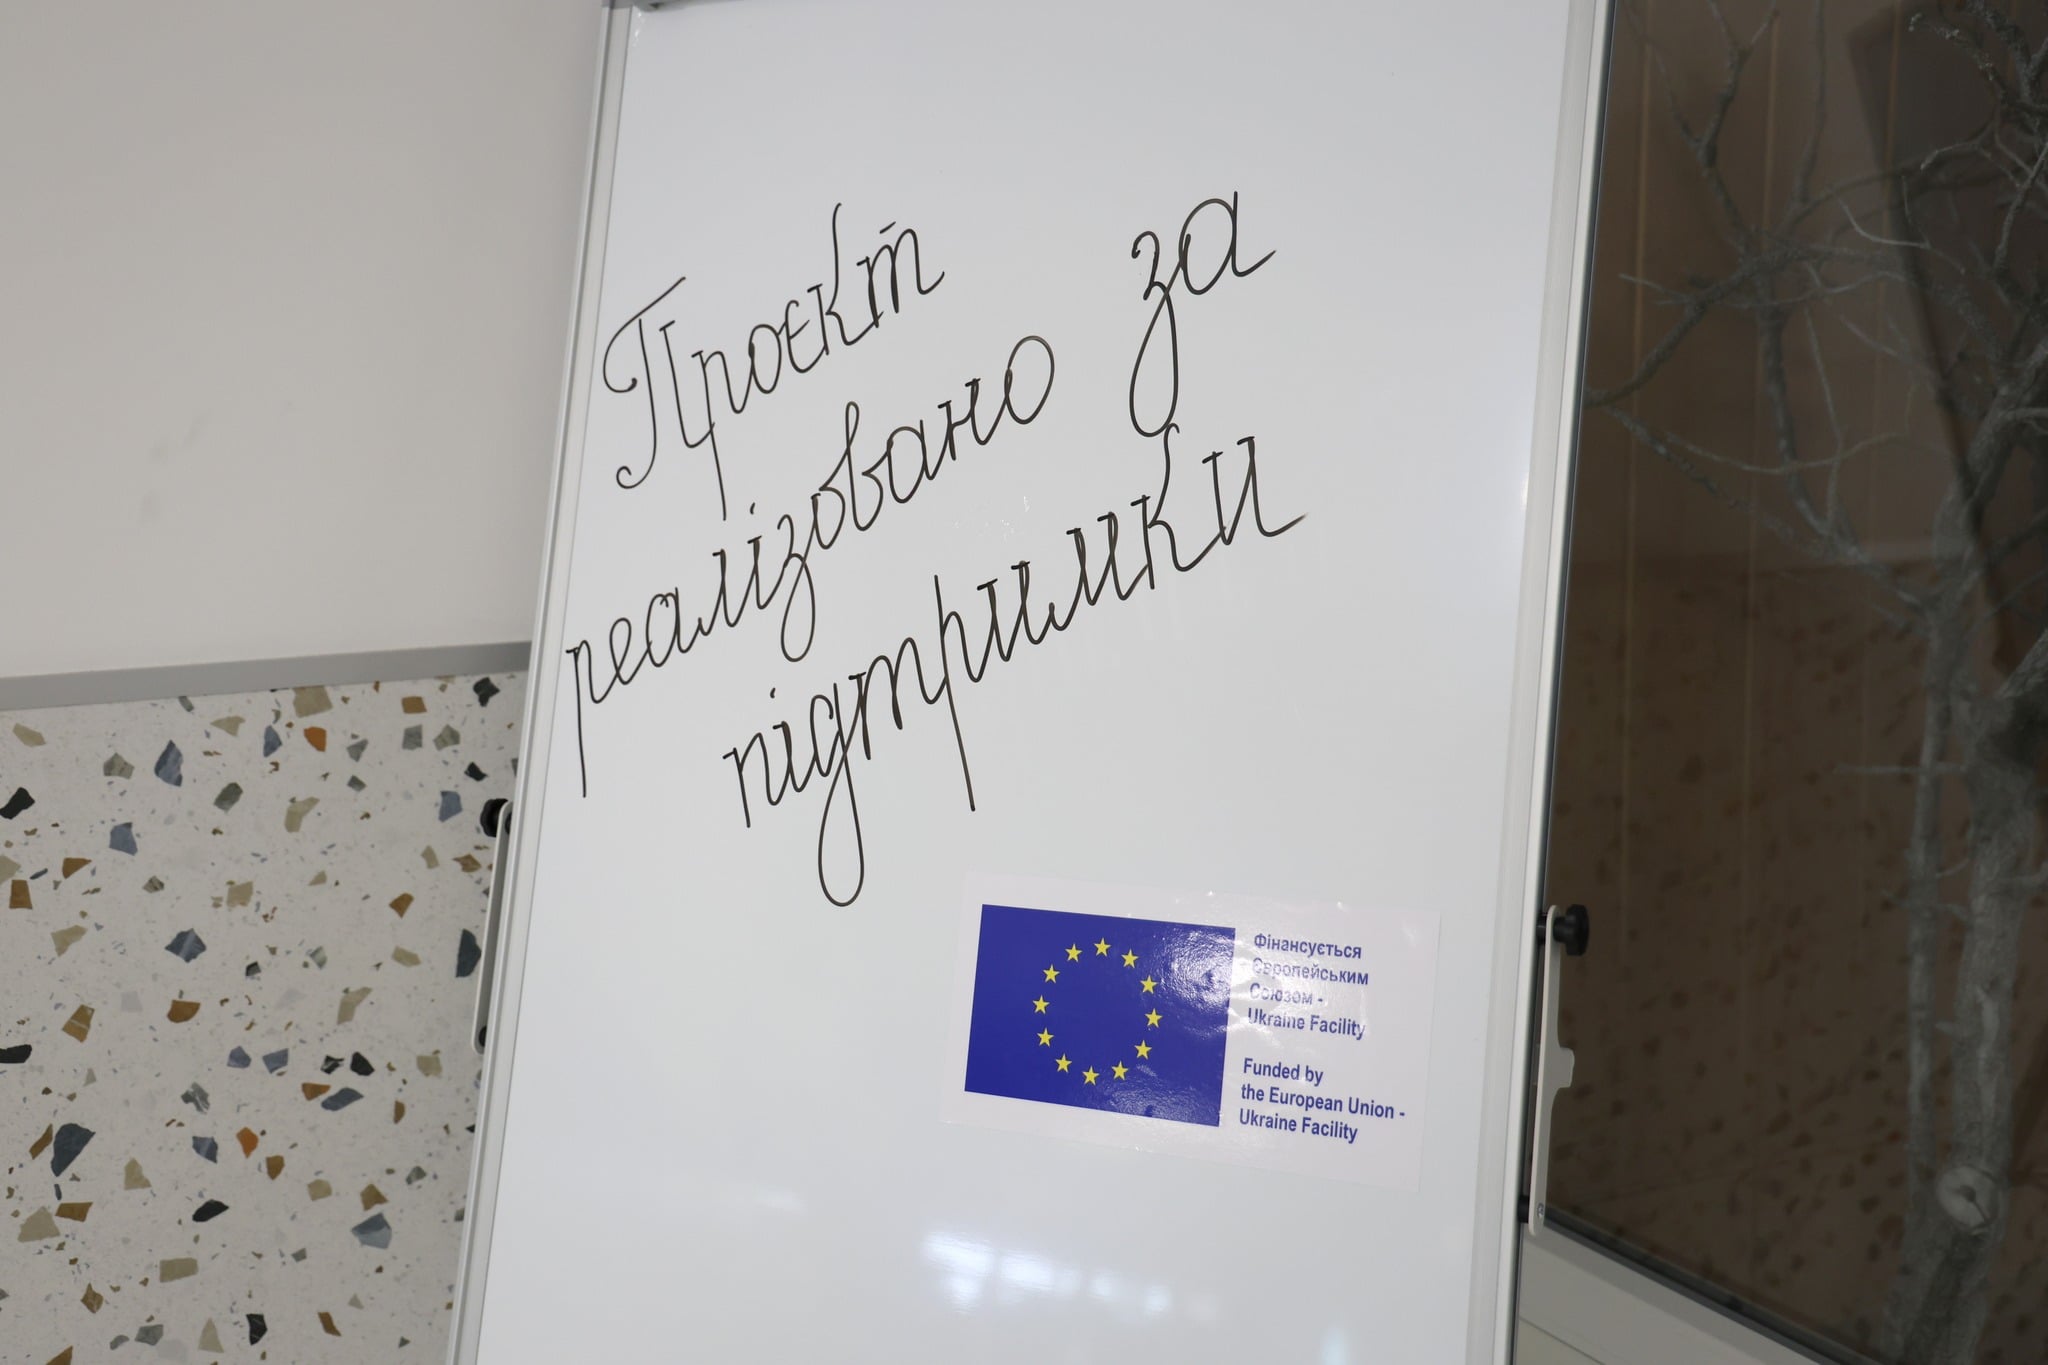 Проєкт
реалізовано за
підтримки
Фінансується
Європейським
Союзом -
Ukraine Facility
Funded by
the European Union -
Ukraine Facility